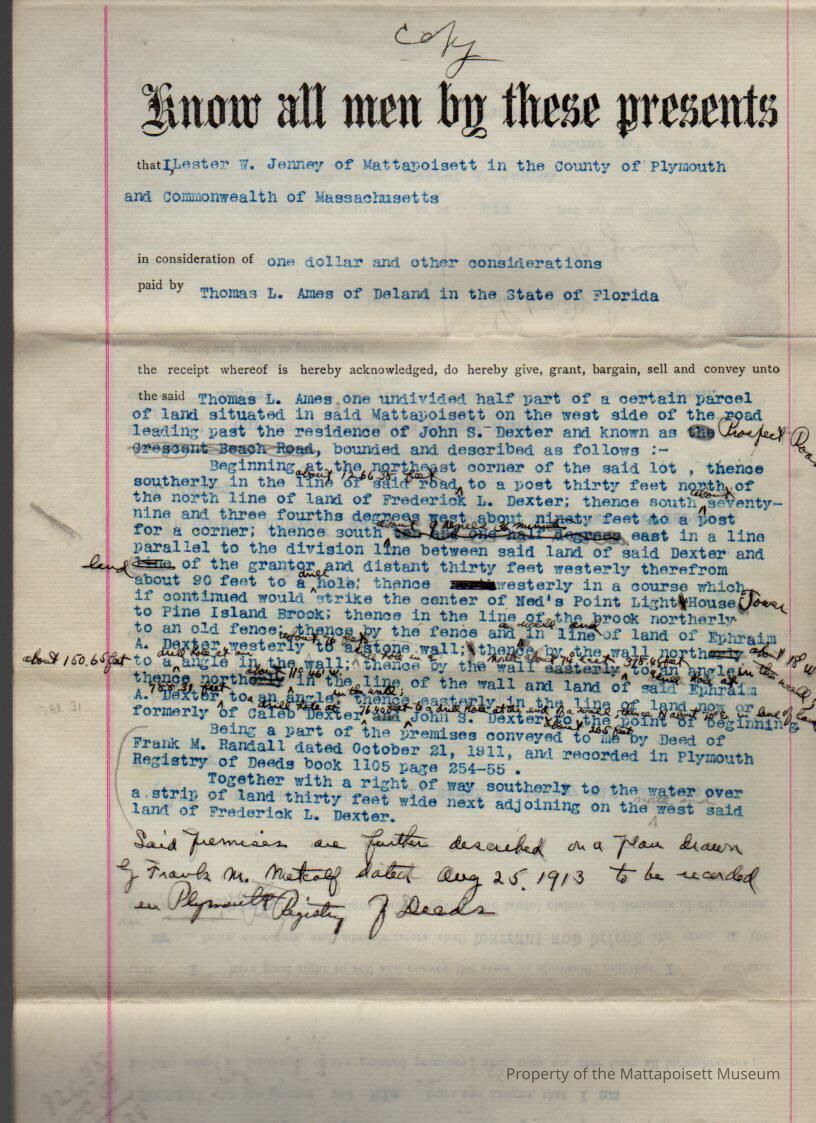 copy
Know all men by these presents
that I, Lester W. Jenney of Mattapoisett in the County of Plymouth
and Commonwealth of Massachusetts
in consideration of one dollar and other considerations
paid by Thomas L. Ames of Deland in the State of Florida
the receipt whereof is hereby acknowledged, do hereby give, grant, bargain, sell and convey unto
the said Thomas L. Ames one undivided half part of a certain parcel
of land situated in said Mattapoisett on the west side of the road
leading past the residence of John S. Dexter and known as the Prospect Road
Crescent Beach Road, bounded and described as follows :-
Beginning at the northeast corner of the said lot , thence
about 1266.38 feet
southerly in the line of said road to a post thirty feet north of
the north line of land of Frederick L. Dexter; thence south about seventy-
nine and three fourths degrees west about ninety feet to a post
about 9 degrees 36 minutes
for a corner; thence south ten and one half degrees east in a line
parallel to the division line between said land of said Dexter and
land line of the grantor and distant thirty feet westerly therefrom
about 90 feet to a drill hole; thence westerly in a course which
if continued would strike the center of Ned's Point Light House Tower
to Pine Island Brook; thence in the line of the brook northerly
a wall and
to an old fence; thence by the fence and in line of land of Ephraim
about 76 feet
A. Dexter westerly to a stone wall; thence by the wall north about 18° W
about 150.65 feet drill hole in a drill hole in a north about 74 feet 378.46 feet
to a angle in the wall; thence by the wall easterly to an angle in the wall
about 110° W drill hole at
thence north in the line of the wall and land of said Ephraim
788.31 feet in the wall;
A. Dexter to an angle thence easterly in the line of land now or
drill hole at 76.40 feet to a drill hole at the end of a wall, thence in line of land
formerly of Caleb Dexter and John S. Dexter to the point of beginning
about 265 feet
Being a part of the premises conveyed to me by Deed of
Frank M. Randall dated October 21, 1911, and recorded in Plymouth
Registry of Deeds book 1105 page 254-55 .
Together with a right of way southerly to the water over
a strip of land thirty feet wide next adjoining on the north and west said
land of Frederick L. Dexter.
Said premises are further described on a plan drawn
by Frank M. Metcalf dated Aug 25, 1913 to be recorded
in Plymouth Registry of Deeds
Property of the Mattapoisett Museum